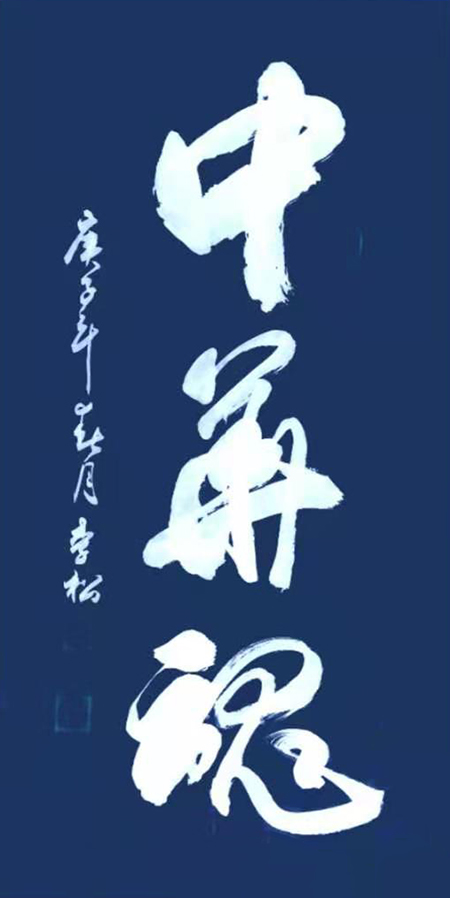 中華魂
庚子年春月李松